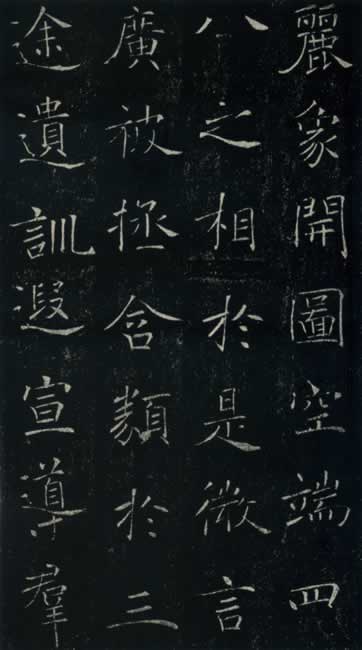 麗象開圖空端四
八之相於是微言
廣被拯含類於三
途遺訓遐宣導羣